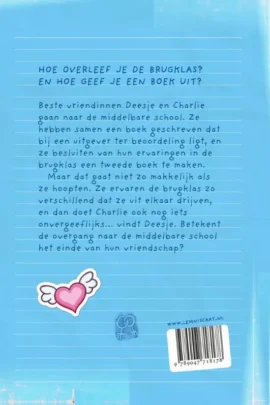 HOE OVERLEEF JE DE BRUGKLAS?
EN HOE GEEF JE EEN BOEK UIT?
Beste vriendinnen Deesje en Charlie
gaan naar de middelbare school. Ze
hebben samen een boek geschreven dat
bij een uitgever ter beoordeling ligt, en
ze besluiten van hun ervaringen in de
brugklas een tweede boek te maken.
Maar dat gaat niet zo makkelijk als
ze hoopten. Ze ervaren de brugklas zo
verschillend dat ze uit elkaar drijven,
en dan doet Charlie ook nog iets
onvergeeflijks... vindt Deesje. Betekent
de overgang naar de middelbare school
het einde van hun vriendschap?
WWW.LEMNISCAAT.NL